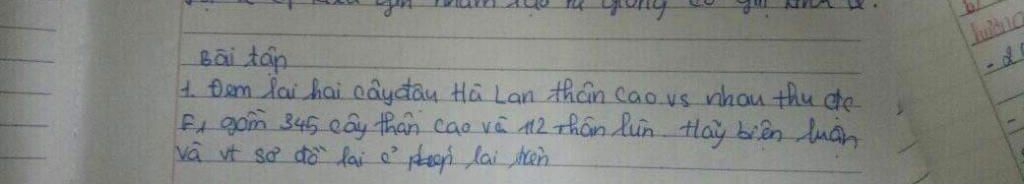 Bài tập
1. Đem lai hai cây đậu Hà Lan thân cao vs nhau thu đc
F1 gồm 345 cây thân cao và 112 thân lùn Hãy biện luận
và vt sơ đồ lai ở phép lai trên